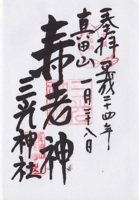 奉拝 平成二十四年
真田山 一月二十八日
寿老神
三光神社